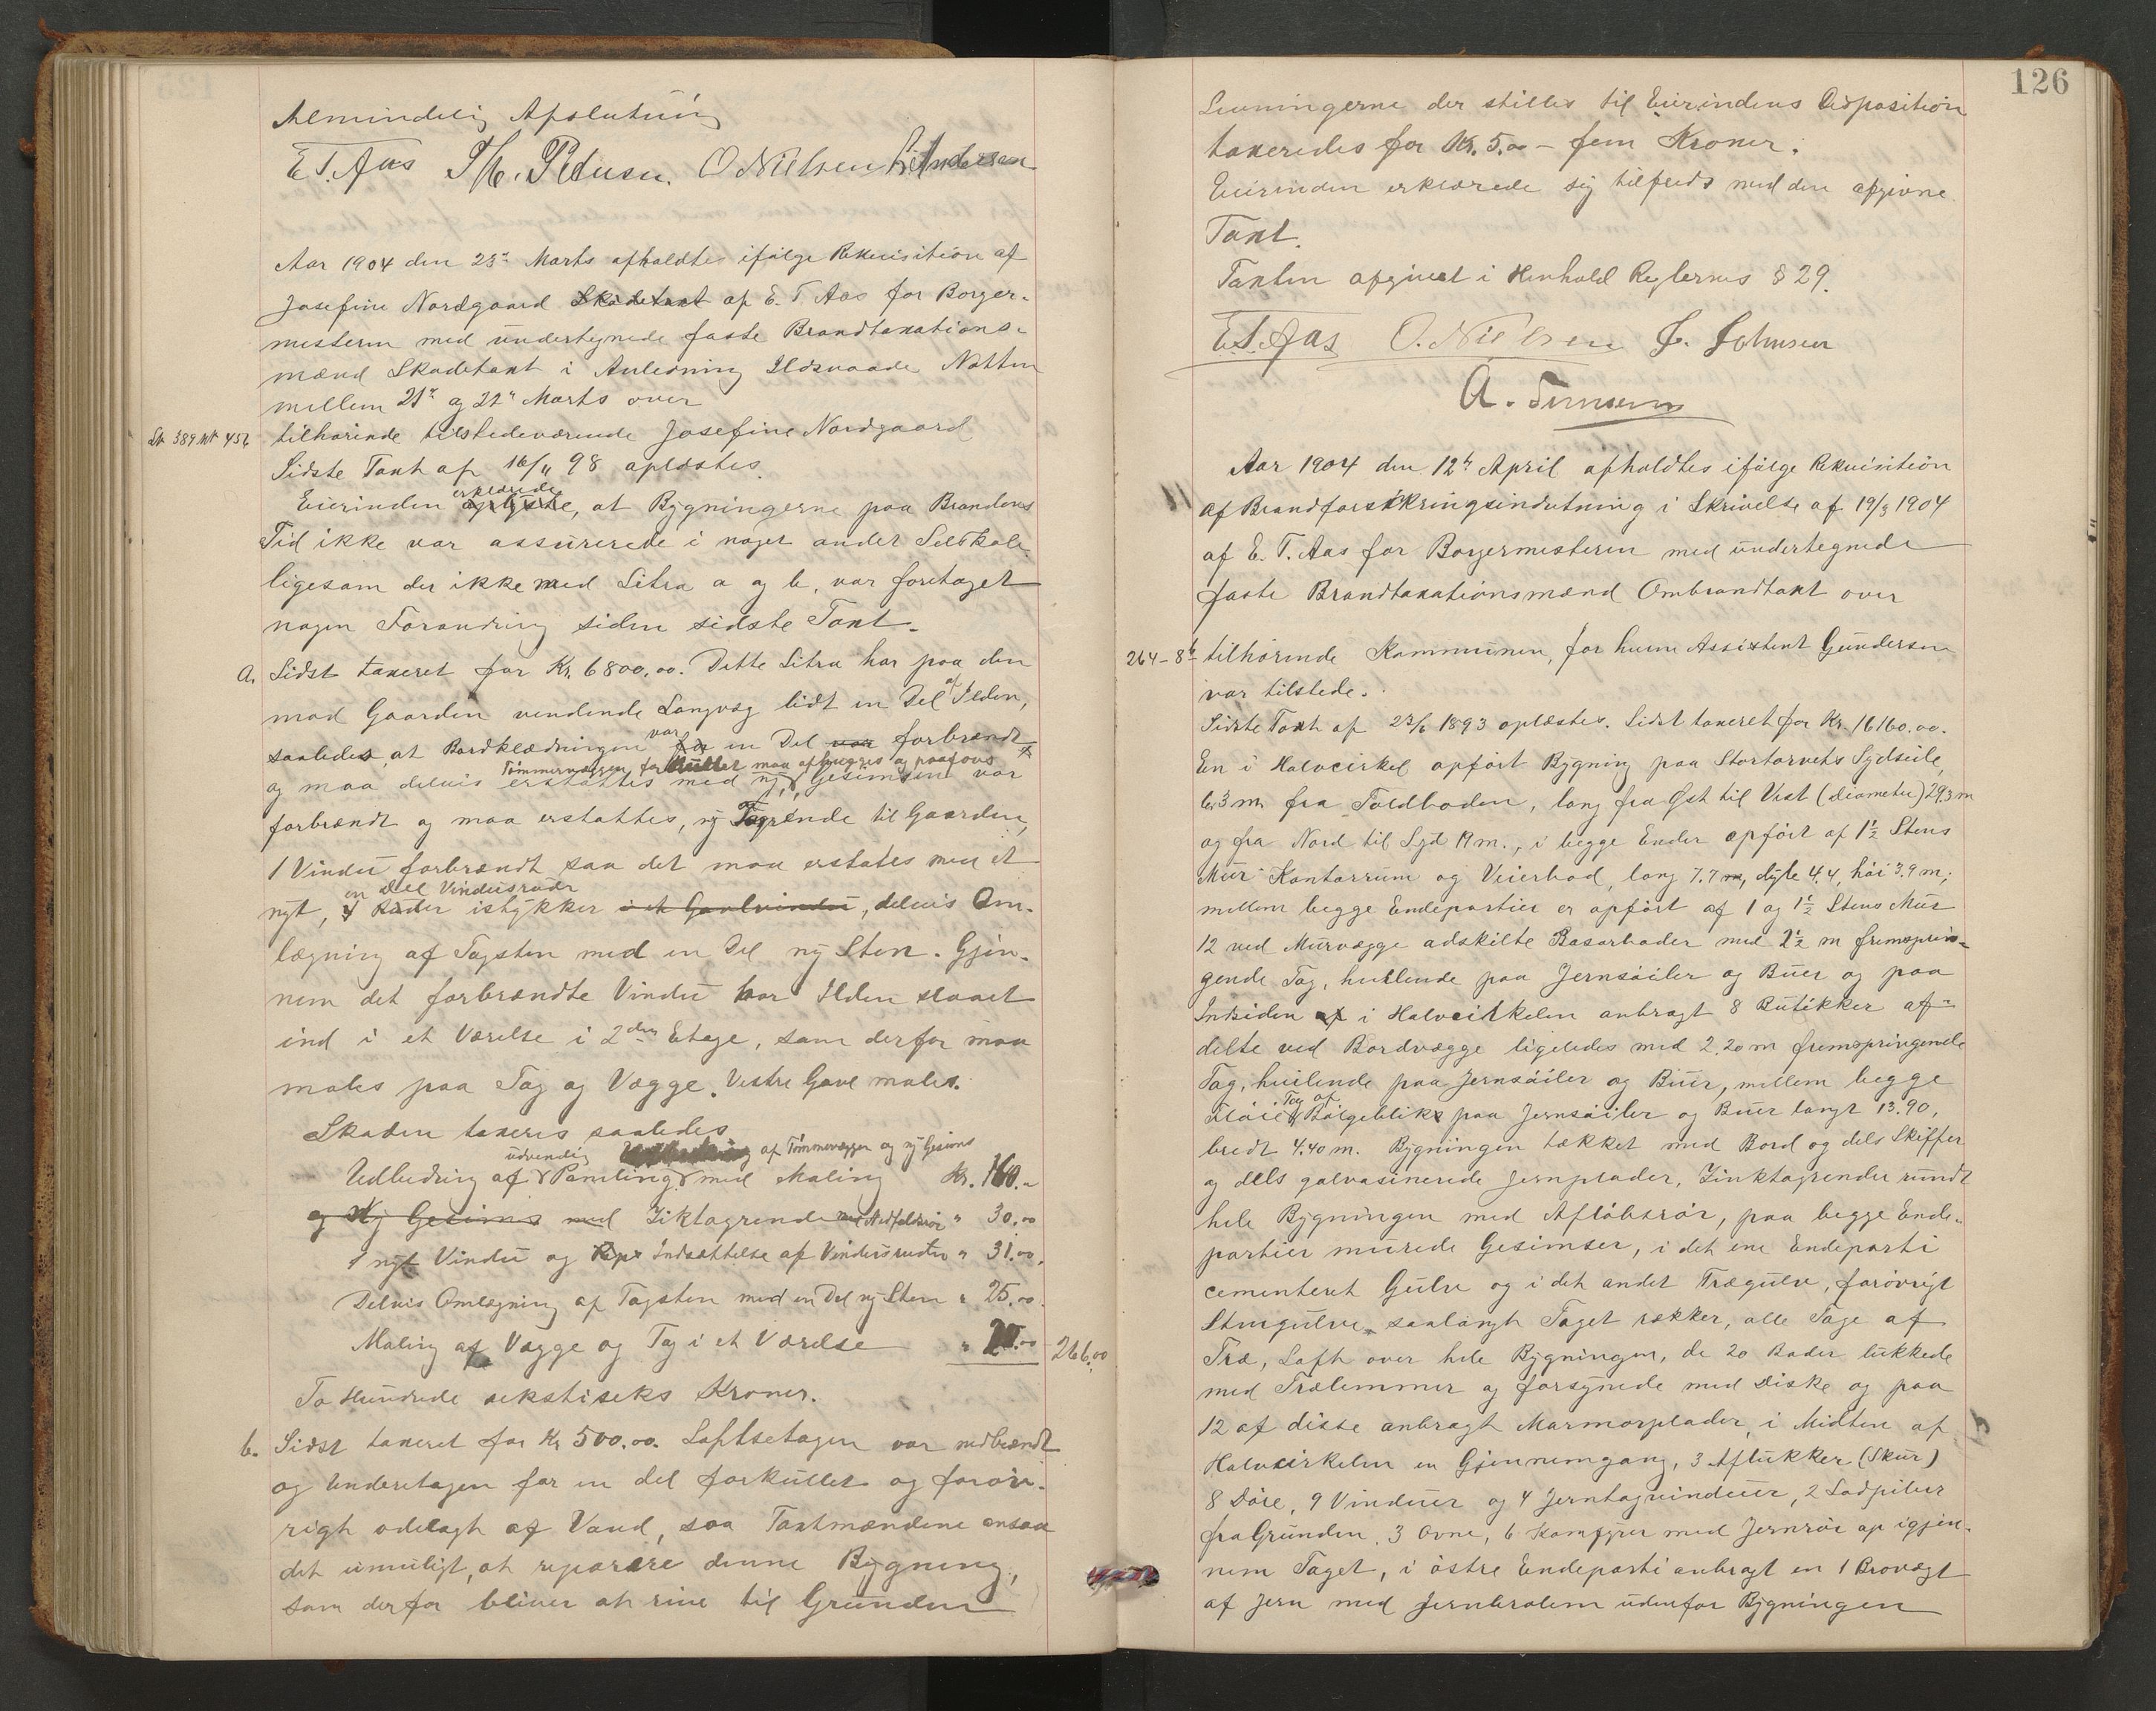 Almindelig Afslutning
E. T. Aas O Nielsen
Aar 1904 den 23de Marts afholdtes ifølge Rekvisition af
Josefine Nordgaard Skadetaxt af E. T Aas for Borger-
mesteren med undertegnede faste Brandtaxations-
mænd Skadetaxt i Anledning Ildsvaade Natten
mellem 21de og 22de Marts over
St. 389 Nt 452 tilhørende tilstedeværende Josefine Nordgaard
Sidste Taxt af 16/11 98 oplæstes.
Eierinden oplyste erklærede, at Bygningerne paa Brandens
Tid ikke var assurerede i noget andet Selskab
ligesom der ikke med Litra a og b, var foretaget
nogen Forandring siden sidste Taxt.
a. Sidst taxeret for Kr. 6800,00. Dette Litra har paa den
mod Gaarden vendende Langvæg lidt en Del af Ilden,
saaledes, at Bordklædningen var en Del var forbrændt
Tømmervæggen forkullet maa afhugges og paafores
og maa delvis erstattes med ny, Gesimsen var
forbrændt og maa erstattes, ny Tagrende til Gaarden,
1 Vindu forbrændt saa det maa erstates med et
en Del Vindusruder
nyt, 4 Ruder istykker i et Gavlvindu, delvis Om-
lægning af Tagsten med en Del ny Sten. Gjen-
nem det forbrændte Vindu har Ilden slaaet
ind i et Værelse i 2den Etage, som derfor maa
males paa Tag og Vægge. Vestre Gavl males.
Skaden taxeres saaledes
udvendig af Tømmervæggen og ny Gesims
Udbedring af Panling med Maling Kr. 160.00
og Ny Gesims med Ziktagrende med Nedfaldsrør " 30.00
1 nyt Vindu og Rep Indsættelse af Vindusruder " 31.00.
Delvis Omlægning af Tagsten med en Del ny Sten " 25.00.
Maling af Vægge og Tag i et Værelse " 20.00 266,00
To Hundrede sekstiseks Kroner.
b. Sidst taxeret for Kr 500.00. Loftsetagen var nedbrændt
og Underetagen for en del forkullet og forøv-
rigt ødelagt af Vand, saa Taxtmændene ansaa
det umuligt, at reparere denne Bygning,
som derfor bliver at rive til Grunden
126
Levningerne der stilles til Eierindens Disposition
taxeredes for Kr. 5.00 – fem Kroner.
Eierinden erklærede sig tilfreds med den afgivne
Taxt.
Taxten afgivet i Henhold Reglernes § 29.
E. T. Aas O. Nielsen J. Johnsen
Aar 1904 den 12te April afholdtes ifølge Rekvisition
af Brandforsikringsindretning i Skrivelse af 19/3 1904
af E. T. Aas for Borgermesteren med undertegnede
faste Brandtaxationsmænd Ombrandtaxt over
264–8b tilhørende Kommunen, for hvem Assistent Gundersen
var tilstede.
Sidste Taxt af 23/6 1893 oplæstes. Sidst taxeret for Kr. 16160.00.
En i Halvcirkel opført Bygning paa Stortorvets Sydside,
6.3 m fra Toldboden, lang fra Øst til Vest (diameter) 29,3 m
og fra Nord til Syd 19 m., i begge Ender opført af 1½ Stens
Mur Kontorrum og Veierbod, lang 7.7 m, dybe 4.4, høi 3.9 m;
mellem begge Endepartier er opført af 1 og 1½ Stens Mur
12 ved Murvægge adskilte Basarboder med 2½ m fremsprin-
gende Tag, hvilende paa Jernsøiler og Buer og paa
Indsiden af i Halvcirkelen anbragt 8 Butikker af-
delte ved Bordvægge ligeledes med 2.20 m fremspringende
Tag, hvilende paa Jernsøiler og Buer, mellem begge
Tag af
Fløie Bølgeblik paa Jernsøiler og Buer langt 13.90,
bredt 4.40 m. Bygningen tækket med Bord og dels Skiffer
og dels galvaniserede Jernplader, Zinktagrender rundt
hele Bygningen med Afløbsrør, paa begge Ende-
partier murede Gesimser, i det ene Endeparti
cementeret Gulv og i det andet Trægulv, forøvrigt
Stengulve saalangt Taget rækker, alle Tage af
Træ, Loft over hele Bygningen, de 20 Boder lukkede
med Trælemmer og forsynede med Diske og paa
12 af disse anbragt Marmorplader, i Midten af
Halvcirkelen en Gjennemgang, 3 Aflukker (Skur)
8 Døre, 9 Vinduer og 4 Jerntagvinduer, 2 Lodpiber
fra Grunden. 3 Ovne, 6 Komfyrer med Jernrør op igjen-
nem Taget, i østre Endeparti anbragt en 1 Brovægt
af Jern med Jernbrolem udenfor Bygningen